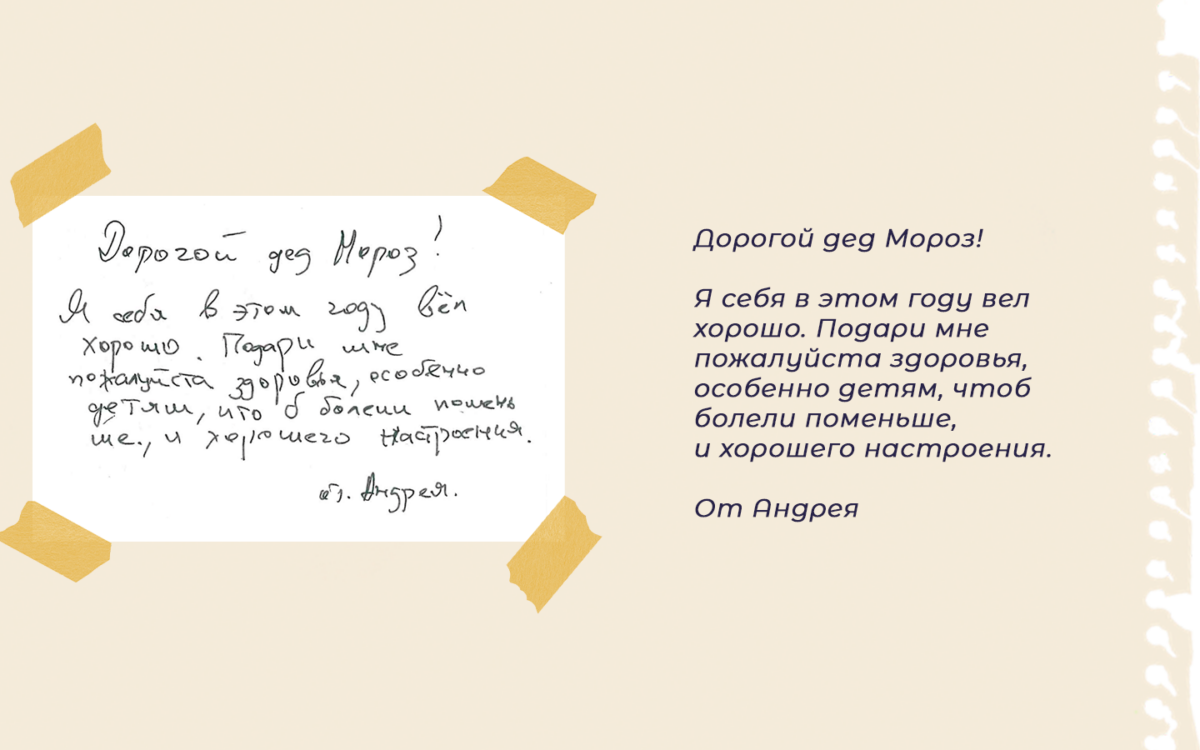 Дорогой дед Мороз!
Я себя в этом году вёл
хорошо. Подари мне
пожалуйста здоровья, особенно
детям, что б болели помень
ше., и хорошего настроения.
от. Андрея.
Дорогой дед Мороз!
Я себя в этом году вел
хорошо. Подари мне
пожалуйста здоровья,
особенно детям, чтоб
болели поменьше,
и хорошего настроения.
От Андрея